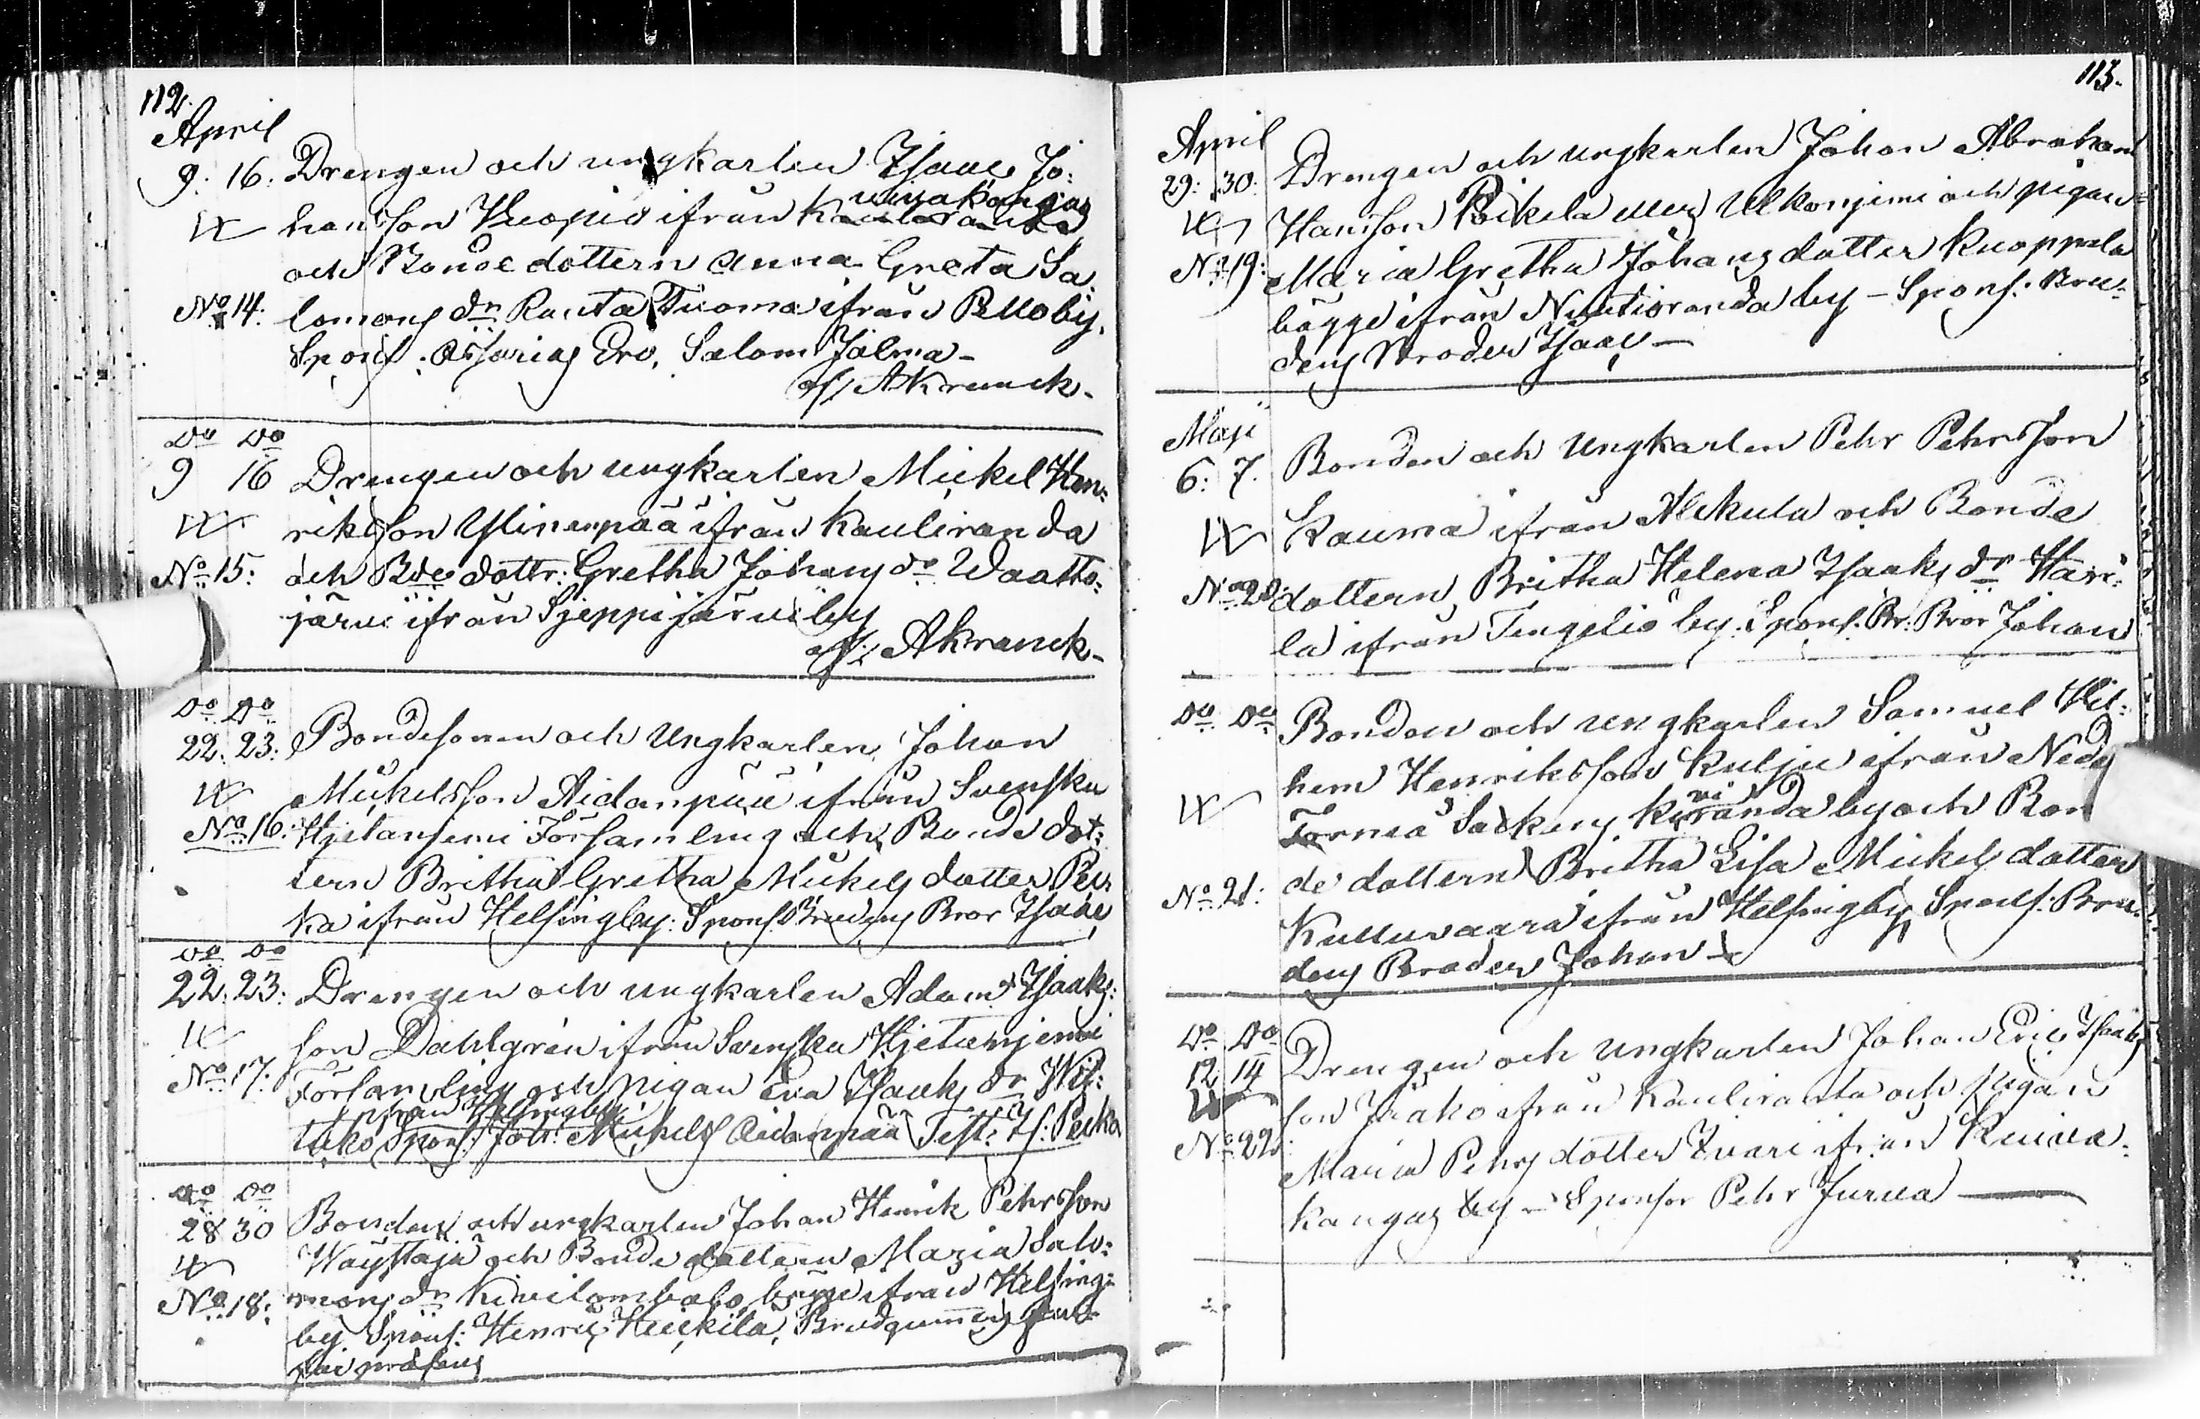 112.
April
9: 16: Drengen och ungkarlen Isaac Jo:
vinakangas
hansson Kuopio ifrån Kauliranda
och Bonde dottern Anna Greta Sa:
No 14: lomons dr Ranta Tuoma ifrån Pelloby.
Spons: Assarias Ero, Salom. Jolma -
A Kranck -
Do Do
9 16 Drengen och ungkarlen Mickel Hen:
riksson Ylinenpää ifrån Kauliranda
No 15: och Bde dottr: Gretha Johans dr Waatto:
järvi ifrån Sjeppijärvi by
A Kranck -
Do Do
22: 23: Bondesonen och Ungkarlen Johan
Mickelsson Aidanpää ifrån Svenska
No 16: Hjetaniemi Församling och Bonde dot:
tern Britha Gretha Mickels dotter Pek
ka ifrån Helsingby: Spons Brudens Bror Isaac
Do Do
22: 23: Drengen och ungkarlen Adam Isaaks:
son Dahlgren ifrån Svenska Hjetaniemi
No 17: Församling och pigan Eva Isaaks dr Wit:
ifrån Helsingby
tiko Spons: Joh: Mickels Aidanpää Test: Is: Pecka
Do Do
28 30 Bonden och ungkarlen Johan Henrik Pehrsson
Wäystäjä och Bonde dottern Maria Salo:
No 18: mons dr Kivilombolo bägge ifrån Helsing:
by Spons: Henric Heickilä, Brudgummens
præsens
113.
April
29: 30: Drengen och ungkarlen Johan Abraham
Hansson Ulkoniemi och pigan
No 19: Maria Gretha Johans dotter Kuoppala
bägge ifrån Niutioranda by - Spons: Bru:
dens Broder Isaac -
Maji
6: 7. Bonden och Ungkarlen Pehr Pehrsson
Kauma ifrån Alckula och Bonde
No 20: dottern Britha Helena Isaaks dr Hari:
la ifrån Tengeliö by. Spons. Br: Bror Johan
Do Do Bonden och ungkarlen Samuel Wil:
hem Henriksson Kulju ifrån Ned
vi
Torneå Socken, Kuranda by och Bon
No 21: de dottern Britha Lisa Mickels dotter
Kulluvaara ifrån Helsingby, Spons: Bru:
dens Broder Johan -
Do Do
12 14 Drengen och Ungkarlen Johan Eric Isaks
son Jaako ifrån Kauliranta och pigan
No 22: Maria Pehrs dotter Ivari ifrån Kuiva:
kangas by - Sponsor Pehr Jurva -